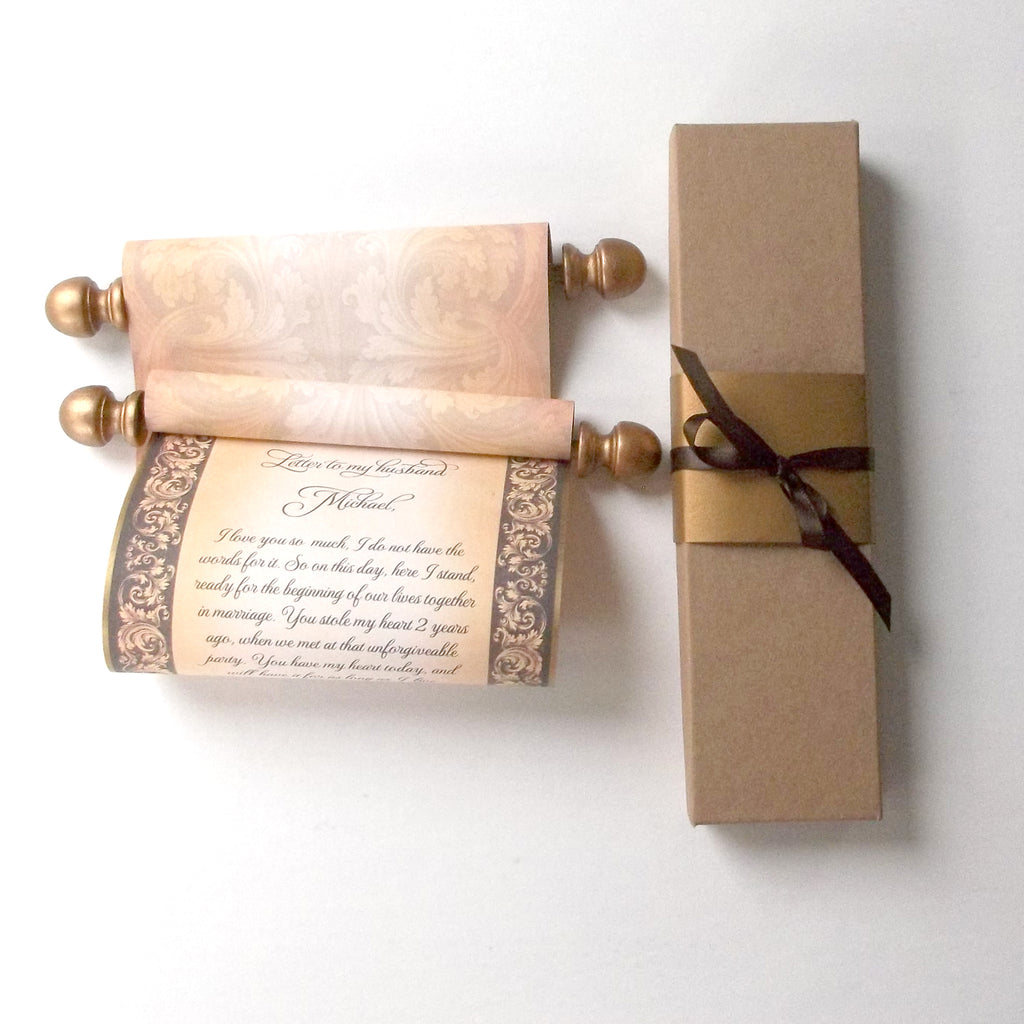 Letter to my husband
Michael,
I love you so much, I do not have the
words for it. So on this day, here I stand,
ready for the beginning of our lives together
in marriage. You stole my heart 2 years
ago, when we met at that unforgiveable
party. You have my heart today, and
will have it for as long as I live